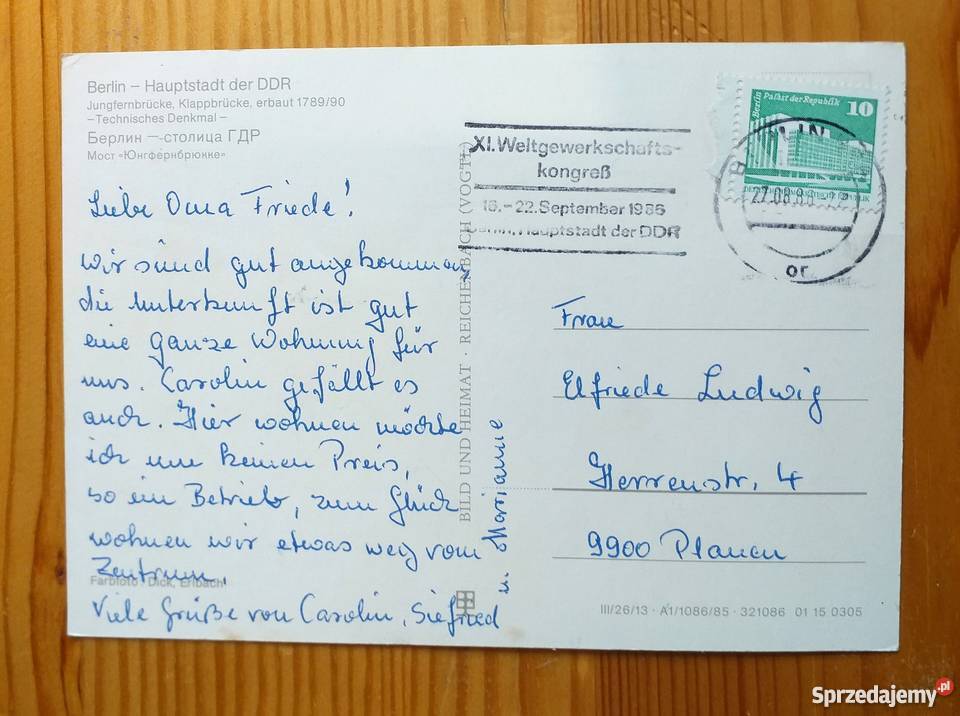 Berlin – Hauptstadt der DDR
Jungfernbrücke, Klappbrücke, erbaut 1789/90
–Technisches Denkmal–
Берлин — столица ГДР
Мост «Юнгфернбрюкке»
Liebe Oma Friede!
wir sind gut angekommen,
die Unterkunft ist gut
eine ganze Wohnung für
uns. Carolin gefällt es
auch. Hier wohnen möchte
ich um keinen Preis,
so ein Betrieb, zum Glück
wohnen wir etwas weg vom
Zentrum.
Viele Grüße von Carolin, Siegfried
u. Marianne
Farbfoto: Dick, Erlbach
BILD UND HEIMAT · REICHENBACH (VOGTL)
XI. Weltgewerkschafts-
kongreß
16.–22. September 1986
Berlin, Hauptstadt der DDR
Berlin Palast der Republik
10
22.08.86
or
Frau
Elfriede Ludwig
Herrenstr. 4
9900 Plauen
III/26/13 · A1/1086/85 · 321086 01 15 0305
Sprzedajemy.pl